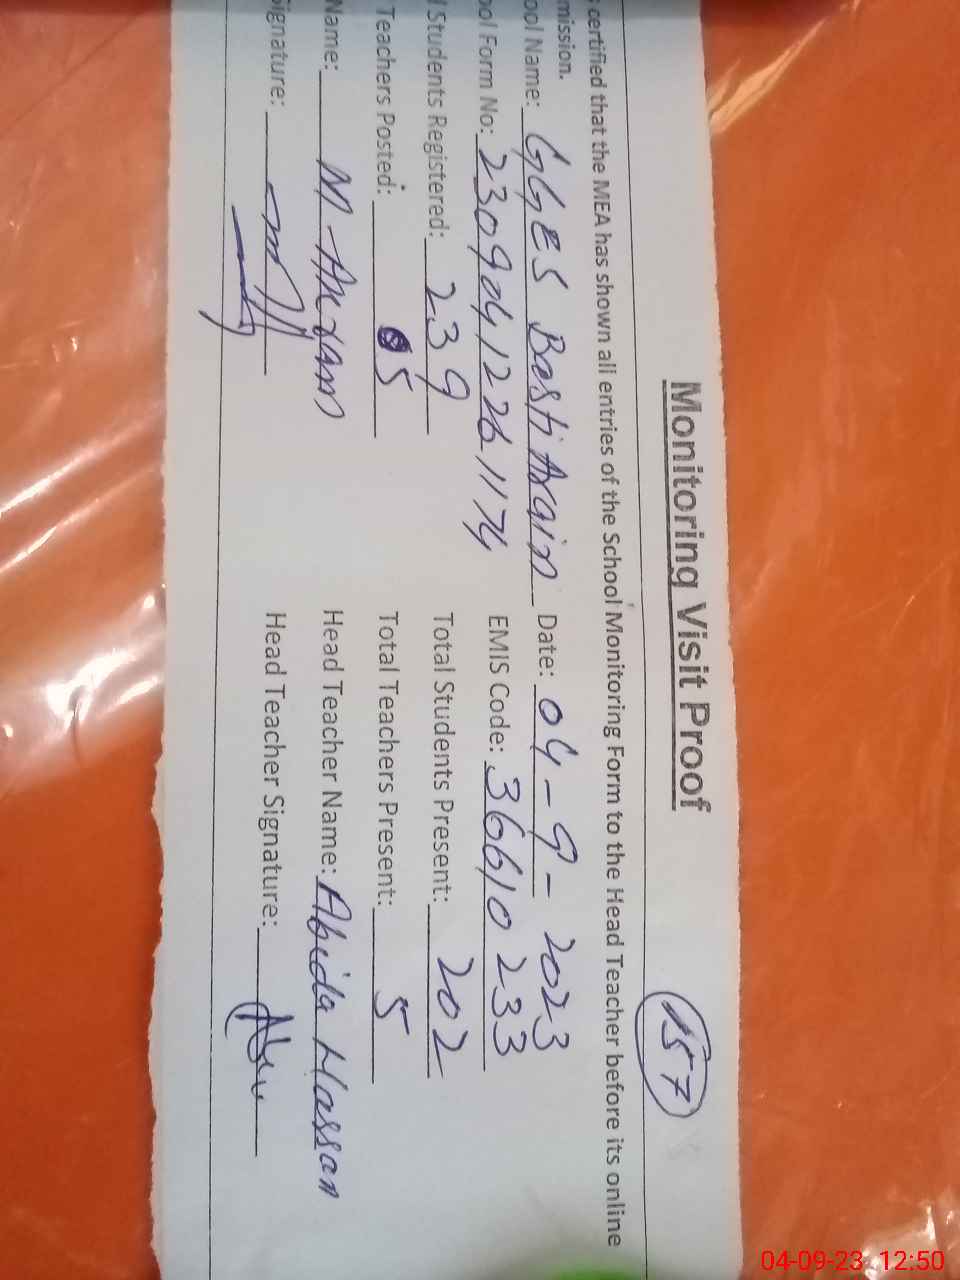 Monitoring Visit Proof
157
certified that the MEA has shown all entries of the School Monitoring Form to the Head Teacher before its online
mission.
ool Name: GGES Basti Arain Date: 04-9-2023
ool Form No: 23090412261174 EMIS Code: 36610233
l Students Registered: 239 Total Students Present: 202
Teachers Posted: 5 Total Teachers Present: 5
Name: M-Akram Head Teacher Name: Abida Hassan
ignature: Head Teacher Signature:
04-09-23 12:50